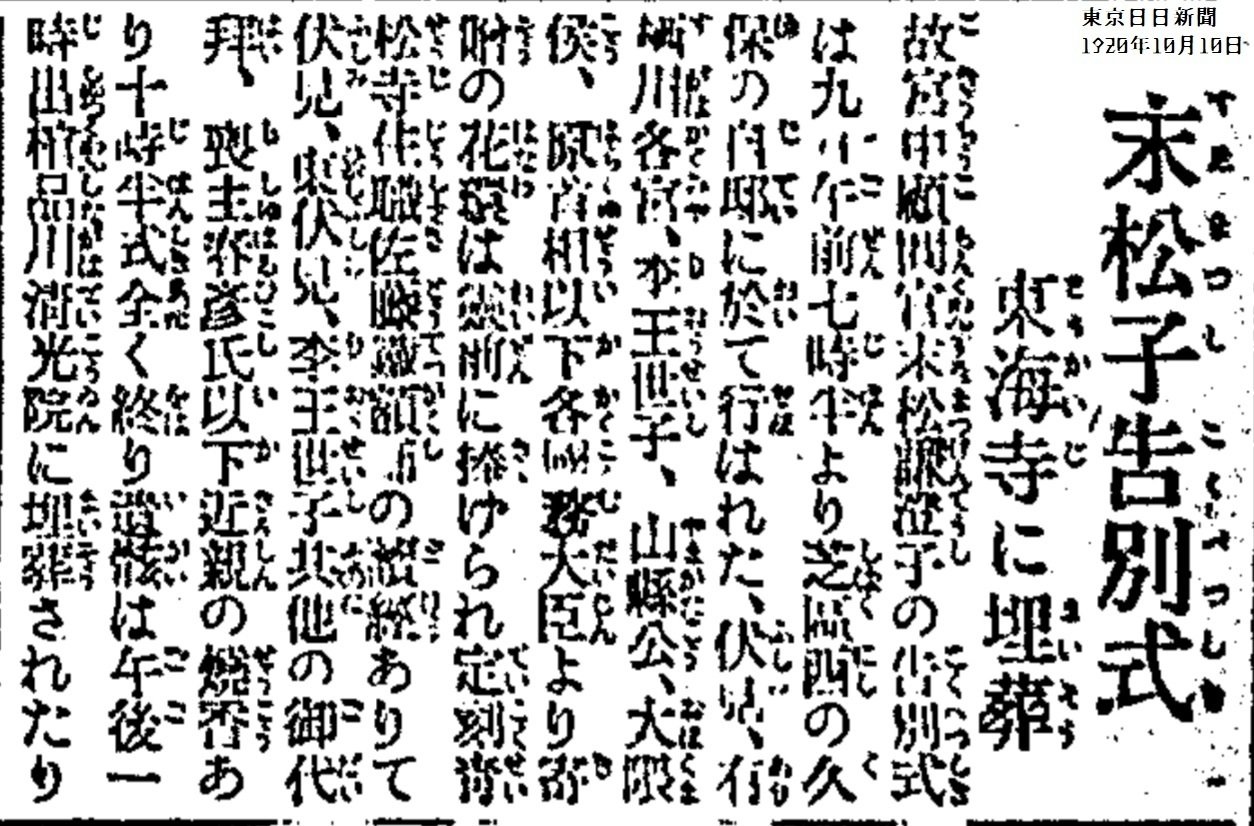 東京日日新聞
1920年10月10日
末松子告別式
東海寺に埋葬
故宮中顧問官末松謙澄子の告別式
は九日午前七時半より芝區西の久
保の自邸に於て行はれた、伏見、有
栖川各宮、李王世子、山縣公、大隈
侯、原首相以下各國務大臣より寄
贈の花環は靈前に捧けられ定刻青
松寺住職佐藤鐵額師の讀經ありて
伏見、東伏見、李王世子其他の御代
拜、喪主春彦氏以下近親の燒香あ
り十時半式全く終り遺骸は午後一
時出棺品川淸光院に埋葬されたり